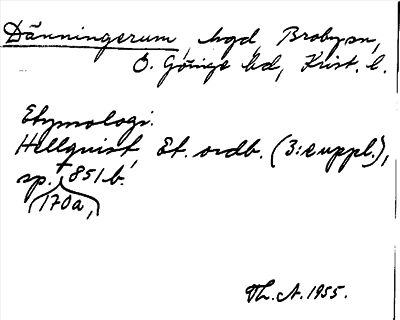 Dänningerum, hgd, Broby sn,
Ö. Göinge hd, Krist. l.
Etymologi.
Hellquist, Et. ordb. (3:e uppl.),
sp. 851 b.
170a,
Th. A. 1955.